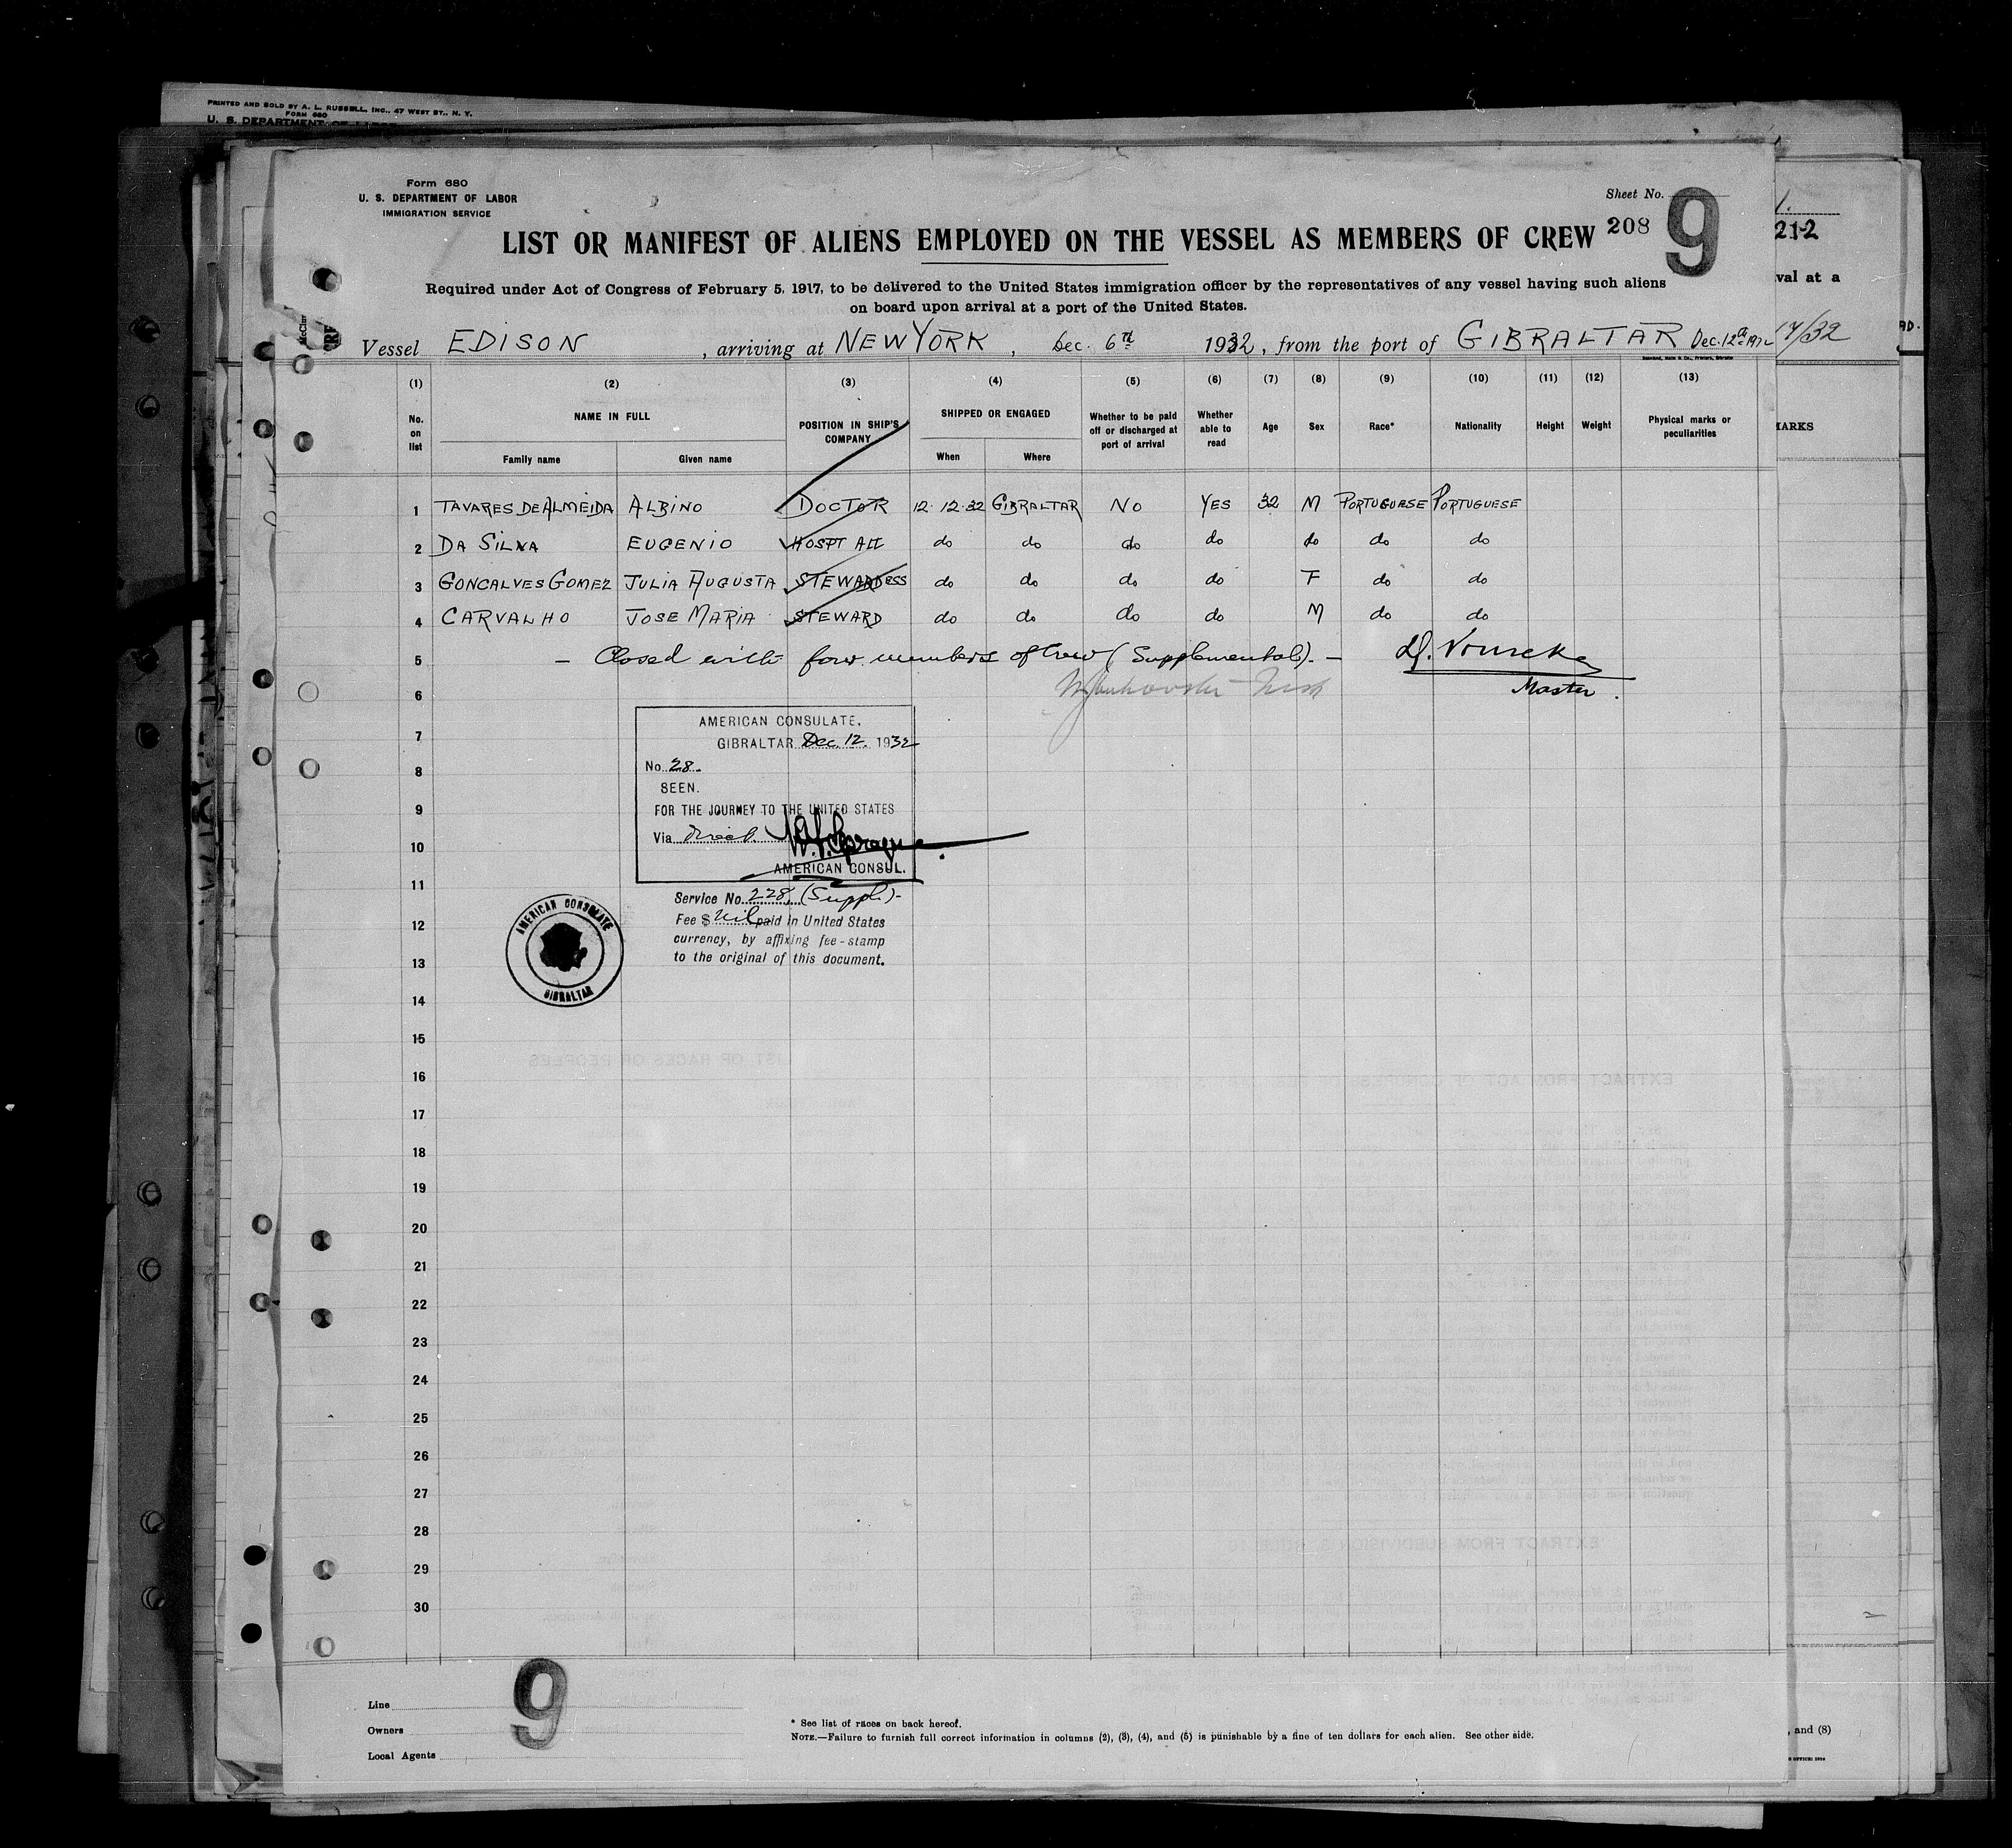 PRINTED AND SOLD BY A. L. RUSSELL, INC., 47 WEST ST., N. Y.
FORM 680
U. S. DEPARTMENT OF LABOR
Form 680
U. S. DEPARTMENT OF LABOR
IMMIGRATION SERVICE
Sheet No. 9
208
LIST OR MANIFEST OF ALIENS EMPLOYED ON THE VESSEL AS MEMBERS OF CREW
212
Required under Act of Congress of February 5, 1917, to be delivered to the United States immigration officer by the representatives of any vessel having such aliens
on board upon arrival at a port of the United States.
val at a
Vessel EDISON, arriving at NEW YORK, Dec. 6th 1932, from the port of GIBRALTAR Dec. 12th
/32
(1) (2) (3) (4) (5) (6) (7) (8) (9) (10) (11) (12) (13)
No. on list
NAME IN FULL
Family name Given name
POSITION IN SHIP'S COMPANY
SHIPPED OR ENGAGED
When Where
Whether to be paid off or discharged at port of arrival
Whether able to read
Age Sex Race* Nationality Height Weight
Physical marks or peculiarities
ARKS
1 TAVARES DE ALMEIDA ALBINO DOCTOR 12.12.32 GIBRALTAR NO YES 32 M PORTUGUESE PORTUGUESE
2 DA SILVA EUGENIO HOSPT ATT do do do do do do do
3 GONCALVES GOMEZ JULIA AUGUSTA STEWARDESS do do do do F do do
4 CARVALHO JOSE MARIA STEWARD do do do do M do do
5 – Closed with four members of Crew (Supplemental). –
6 Master.
7
8
9
10
11
12
13
14
15
16
17
18
19
20
21
22
23
24
25
26
27
28
29
30
AMERICAN CONSULATE,
GIBRALTAR Dec. 12. 1932
No. 28.
SEEN.
FOR THE JOURNEY TO THE UNITED STATES
Via direct.
W. L. Sprague.
AMERICAN CONSUL.
Service No. 228. (Suppl.)-
Fee $ Nil paid in United States
currency, by affixing fee-stamp
to the original of this document.
AMERICAN CONSULATE
GIBRALTAR
9
Line
Owners
Local Agents
* See list of races on back hereof.
NOTE.—Failure to furnish full correct information in columns (2), (3), (4), and (5) is punishable by a fine of ten dollars for each alien. See other side.
, and (8)